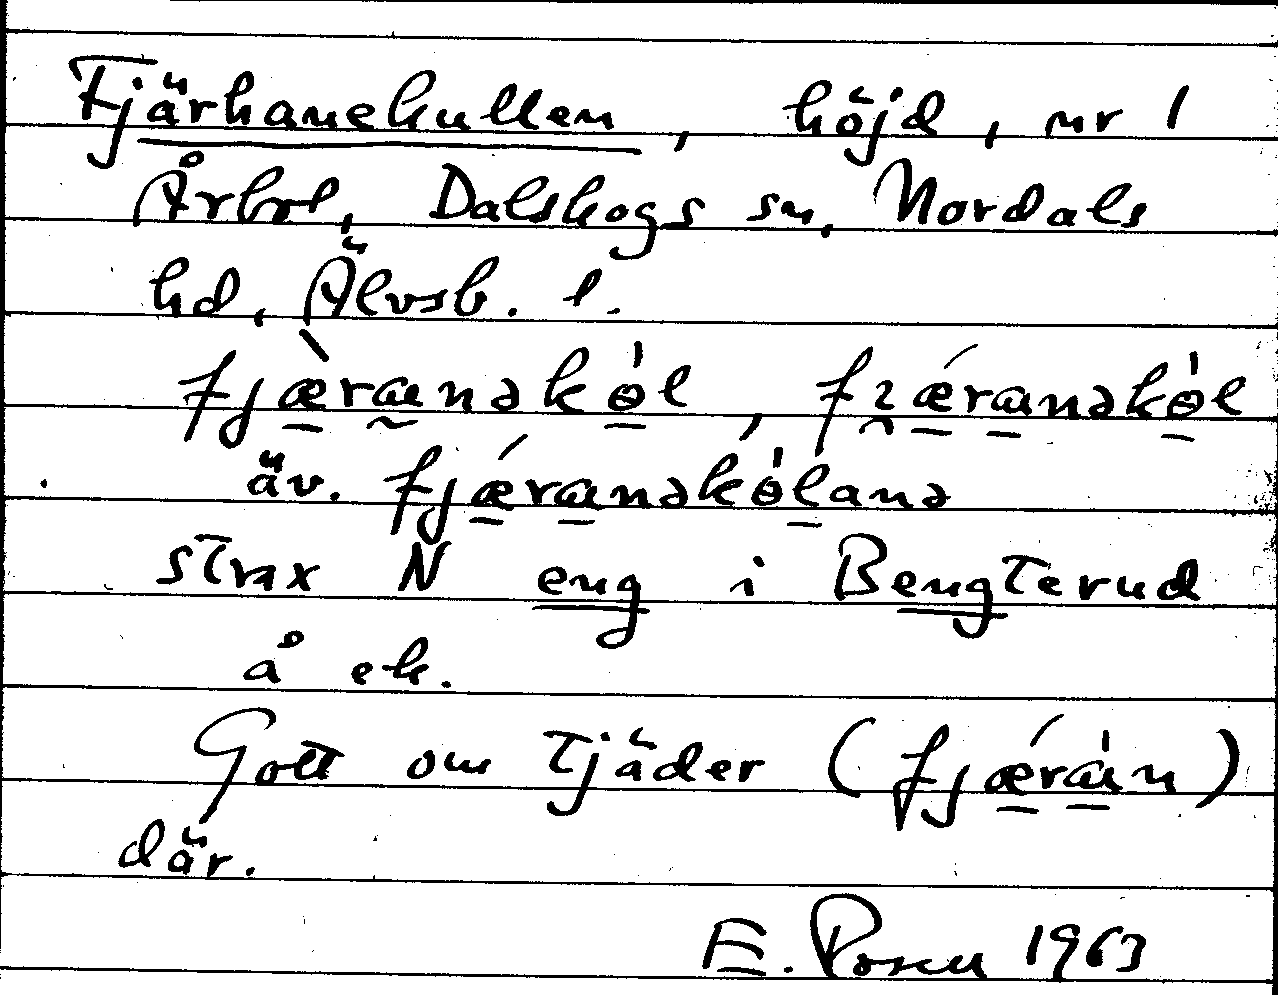 Fjärhanekullen, höjd, nr 1
Årbol, Dalskogs sn, Nordals
hd, Älvsb. l.
fjæ̀ranəkɵ́l, fɿǽranəkɵ́l
äv. fjǽranəkɵ́lanə
strax N eng i Bengterud
å ek.
Gott om tjäder (fjǽrán)
där.
E. Rosell 1963